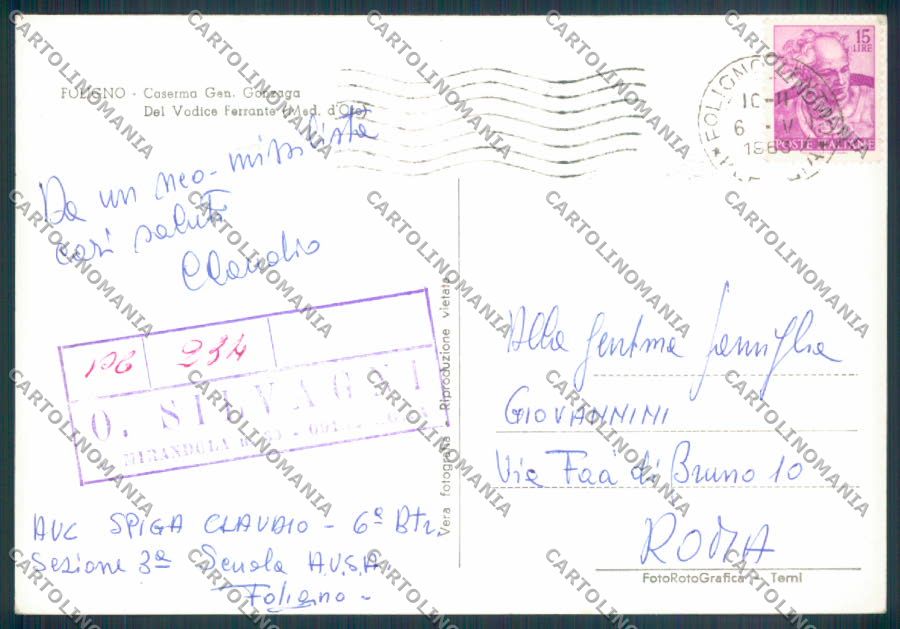 FOLIGNO - Caserma Gen. Gonzaga
Del Vodice Ferrante (Med. d'Oro)
Da un neo-missilista
cari saluti
Claudio
196 234
O. SILVAGNI
MIRANDOLA
AUC SPIGA CLAUDIO - 6ª Btr.
Sezione 3ª Scuola A.U.S.A.
Foligno -
Vera fotografia - Riproduzione vietata
15
LIRE
POSTE ITALIANE
FOLIGNO
10-11
6 - V
Alla Gent.ma famiglia
GIOVANNINI
Via Faà di Bruno 10
ROMA
FotoRotoGrafica - Terni
CARTOLINOMANIA